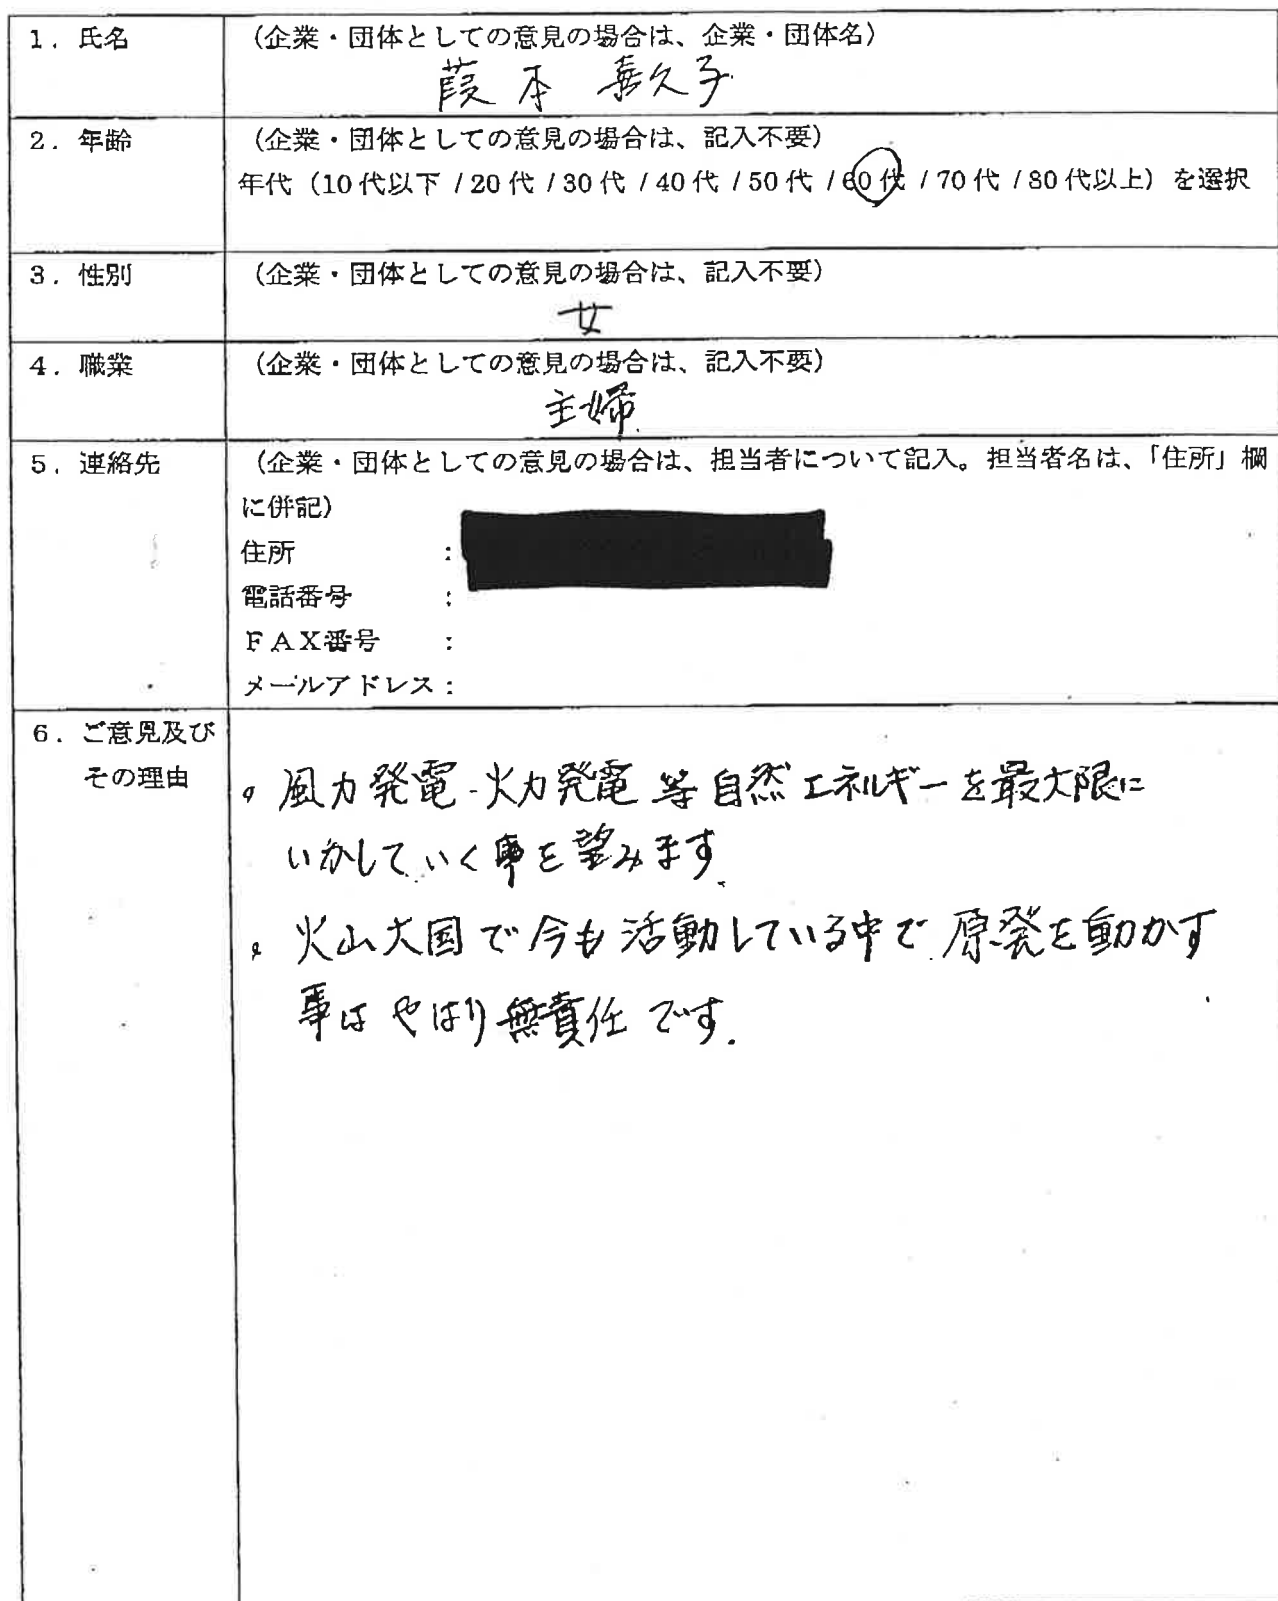 1．氏名
（企業・団体としての意見の場合は、企業・団体名）
葭本 喜久子
2．年齢
（企業・団体としての意見の場合は、記入不要）
年代（10代以下 / 20代 / 30代 / 40代 / 50代 / 60代 / 70代 / 80代以上）を選択
3．性別
（企業・団体としての意見の場合は、記入不要）
女
4．職業
（企業・団体としての意見の場合は、記入不要）
主婦
5．連絡先
（企業・団体としての意見の場合は、担当者について記入。担当者名は、「住所」欄
に併記）
住所　　　　：
電話番号　　：
ＦＡＸ番号　：
メールアドレス：
6．ご意見及び
その理由
。風力発電・火力発電 等 自然エネルギーを最大限に
いかしていく事を望みます。
。火山大国で今も活動している中で 原発を動かす
事は やはり 無責任です。